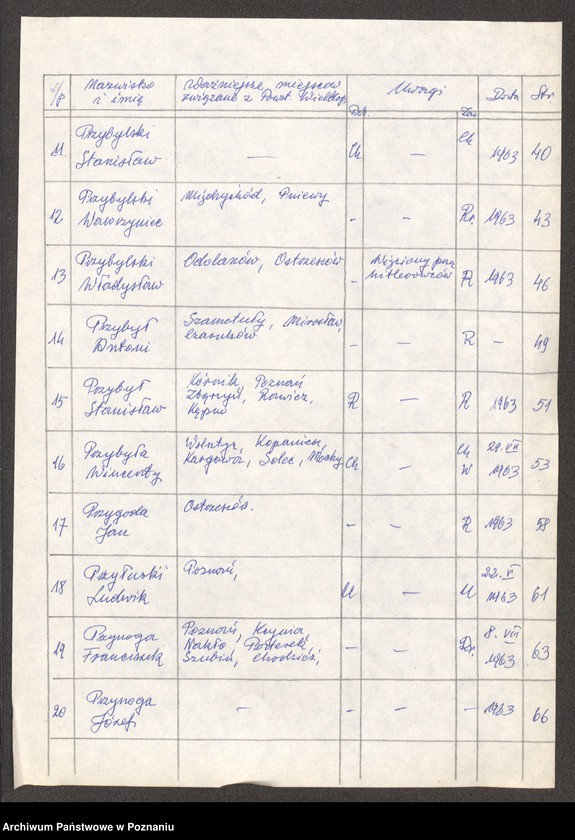 L/p Nazwisko i imię Ważniejsze miejscow. związane z Powst. Wielkop. Uwagi Data Str
11 Przybylski Stanisław — Ch — Ch 1963 40
12 Przybylski Wawrzyniec Międzychód, Pniewy - - R. 1963 43
13 Przybylski Władysław Odolanów, Ostrzeszów - Więziony przez hitlerowców R 1963 46
14 Przybył Antoni Szamotuły, Mirosław, Czarnków - - R - 49
15 Przybył Stanisław Kórnik, Poznań Zbąszyń, Rawicz, Kępno R — R 1963 51
16 Przybyła Wincenty Wolsztyn, Kopanica, Kargowa, Solec, Mochy Ch — Ch W 29. VII 1963 53
17 Przygoda Jan Ostrzeszów. - - R 1963 58
18 Przyłuski Ludwik Poznań, M — M 22. V 1963 61
19 Przynoga Franciszek Poznań, Kcynia Nakło, Szubin, Chodzież, - — Dr. 8. VII 1963 63
20 Przynoga Józef — - — — 1963 66
Archiwum Państwowe w Poznaniu